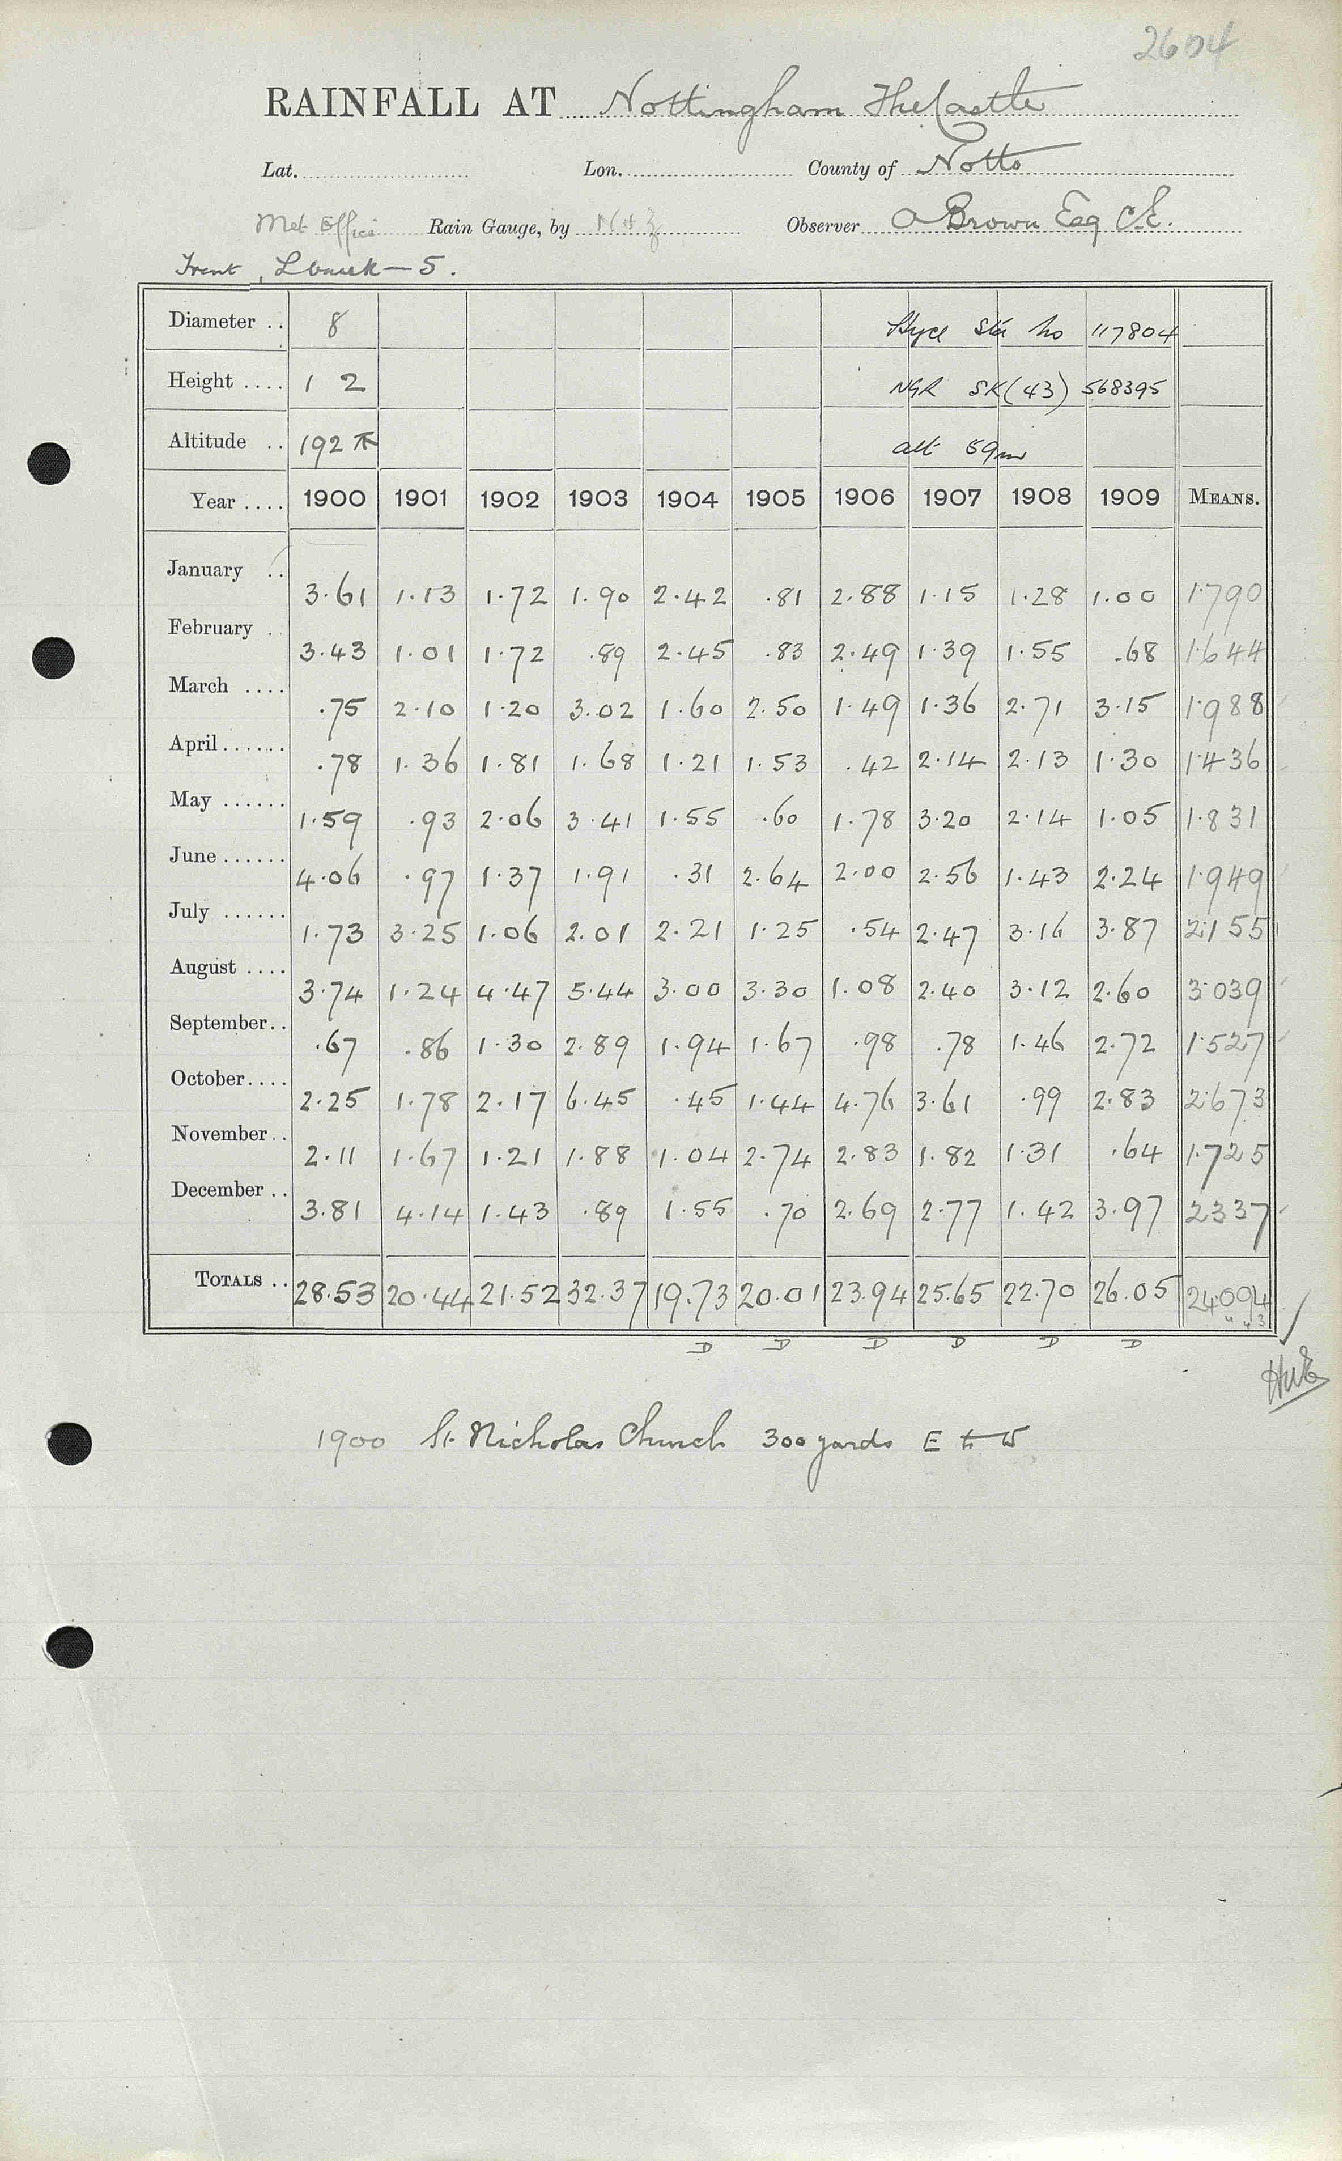 2604
RAINFALL AT Nottingham The Castle
Lat. Lon. County of Notts
Met Office Rain Gauge, by N & Z Observer O Brown Esq C.E.
Trent, L bank - 5.
Diameter .. 8 Hyd Sta No 117804
Height .... 1 2 NGR SK (43) 568395
Altitude .. 192 alt 59m
Year .... 1900 1901 1902 1903 1904 1905 1906 1907 1908 1909 MEANS.
January .. 3.61 1.13 1.72 1.90 2.42 .81 2.88 1.15 1.28 1.00 1.790
February .. 3.43 1.01 1.72 .89 2.45 .83 2.49 1.39 1.55 .68 1.644
March .... .75 2.10 1.20 3.02 1.60 2.50 1.49 1.36 2.71 3.15 1.988
April ...... .78 1.36 1.81 1.68 1.21 1.53 .42 2.14 2.13 1.30 1.436
May ...... 1.59 .93 2.06 3.41 1.55 .60 1.78 3.20 2.14 1.05 1.831
June ...... 4.06 .97 1.37 1.91 .31 2.64 2.00 2.56 1.43 2.24 1.949
July ...... 1.73 3.25 1.06 2.01 2.21 1.25 .54 2.47 3.16 3.87 2.155
August .... 3.74 1.24 4.47 5.44 3.00 3.30 1.08 2.40 3.12 2.60 3.039
September .. .67 .86 1.30 2.89 1.94 1.67 .98 .78 1.46 2.72 1.527
October .... 2.25 1.78 2.17 6.45 .45 1.44 4.76 3.61 .99 2.83 2.673
November .. 2.11 1.67 1.21 1.88 1.04 2.74 2.83 1.82 1.31 .64 1.725
December .. 3.81 4.14 1.43 .89 1.55 .70 2.69 2.77 1.42 3.97 2.337
TOTALS .. 28.53 20.44 21.52 32.37 19.73 20.01 23.94 25.65 22.70 26.05 24.094
D D D D D D
1900 St. Nicholas Church 300 yards E to W